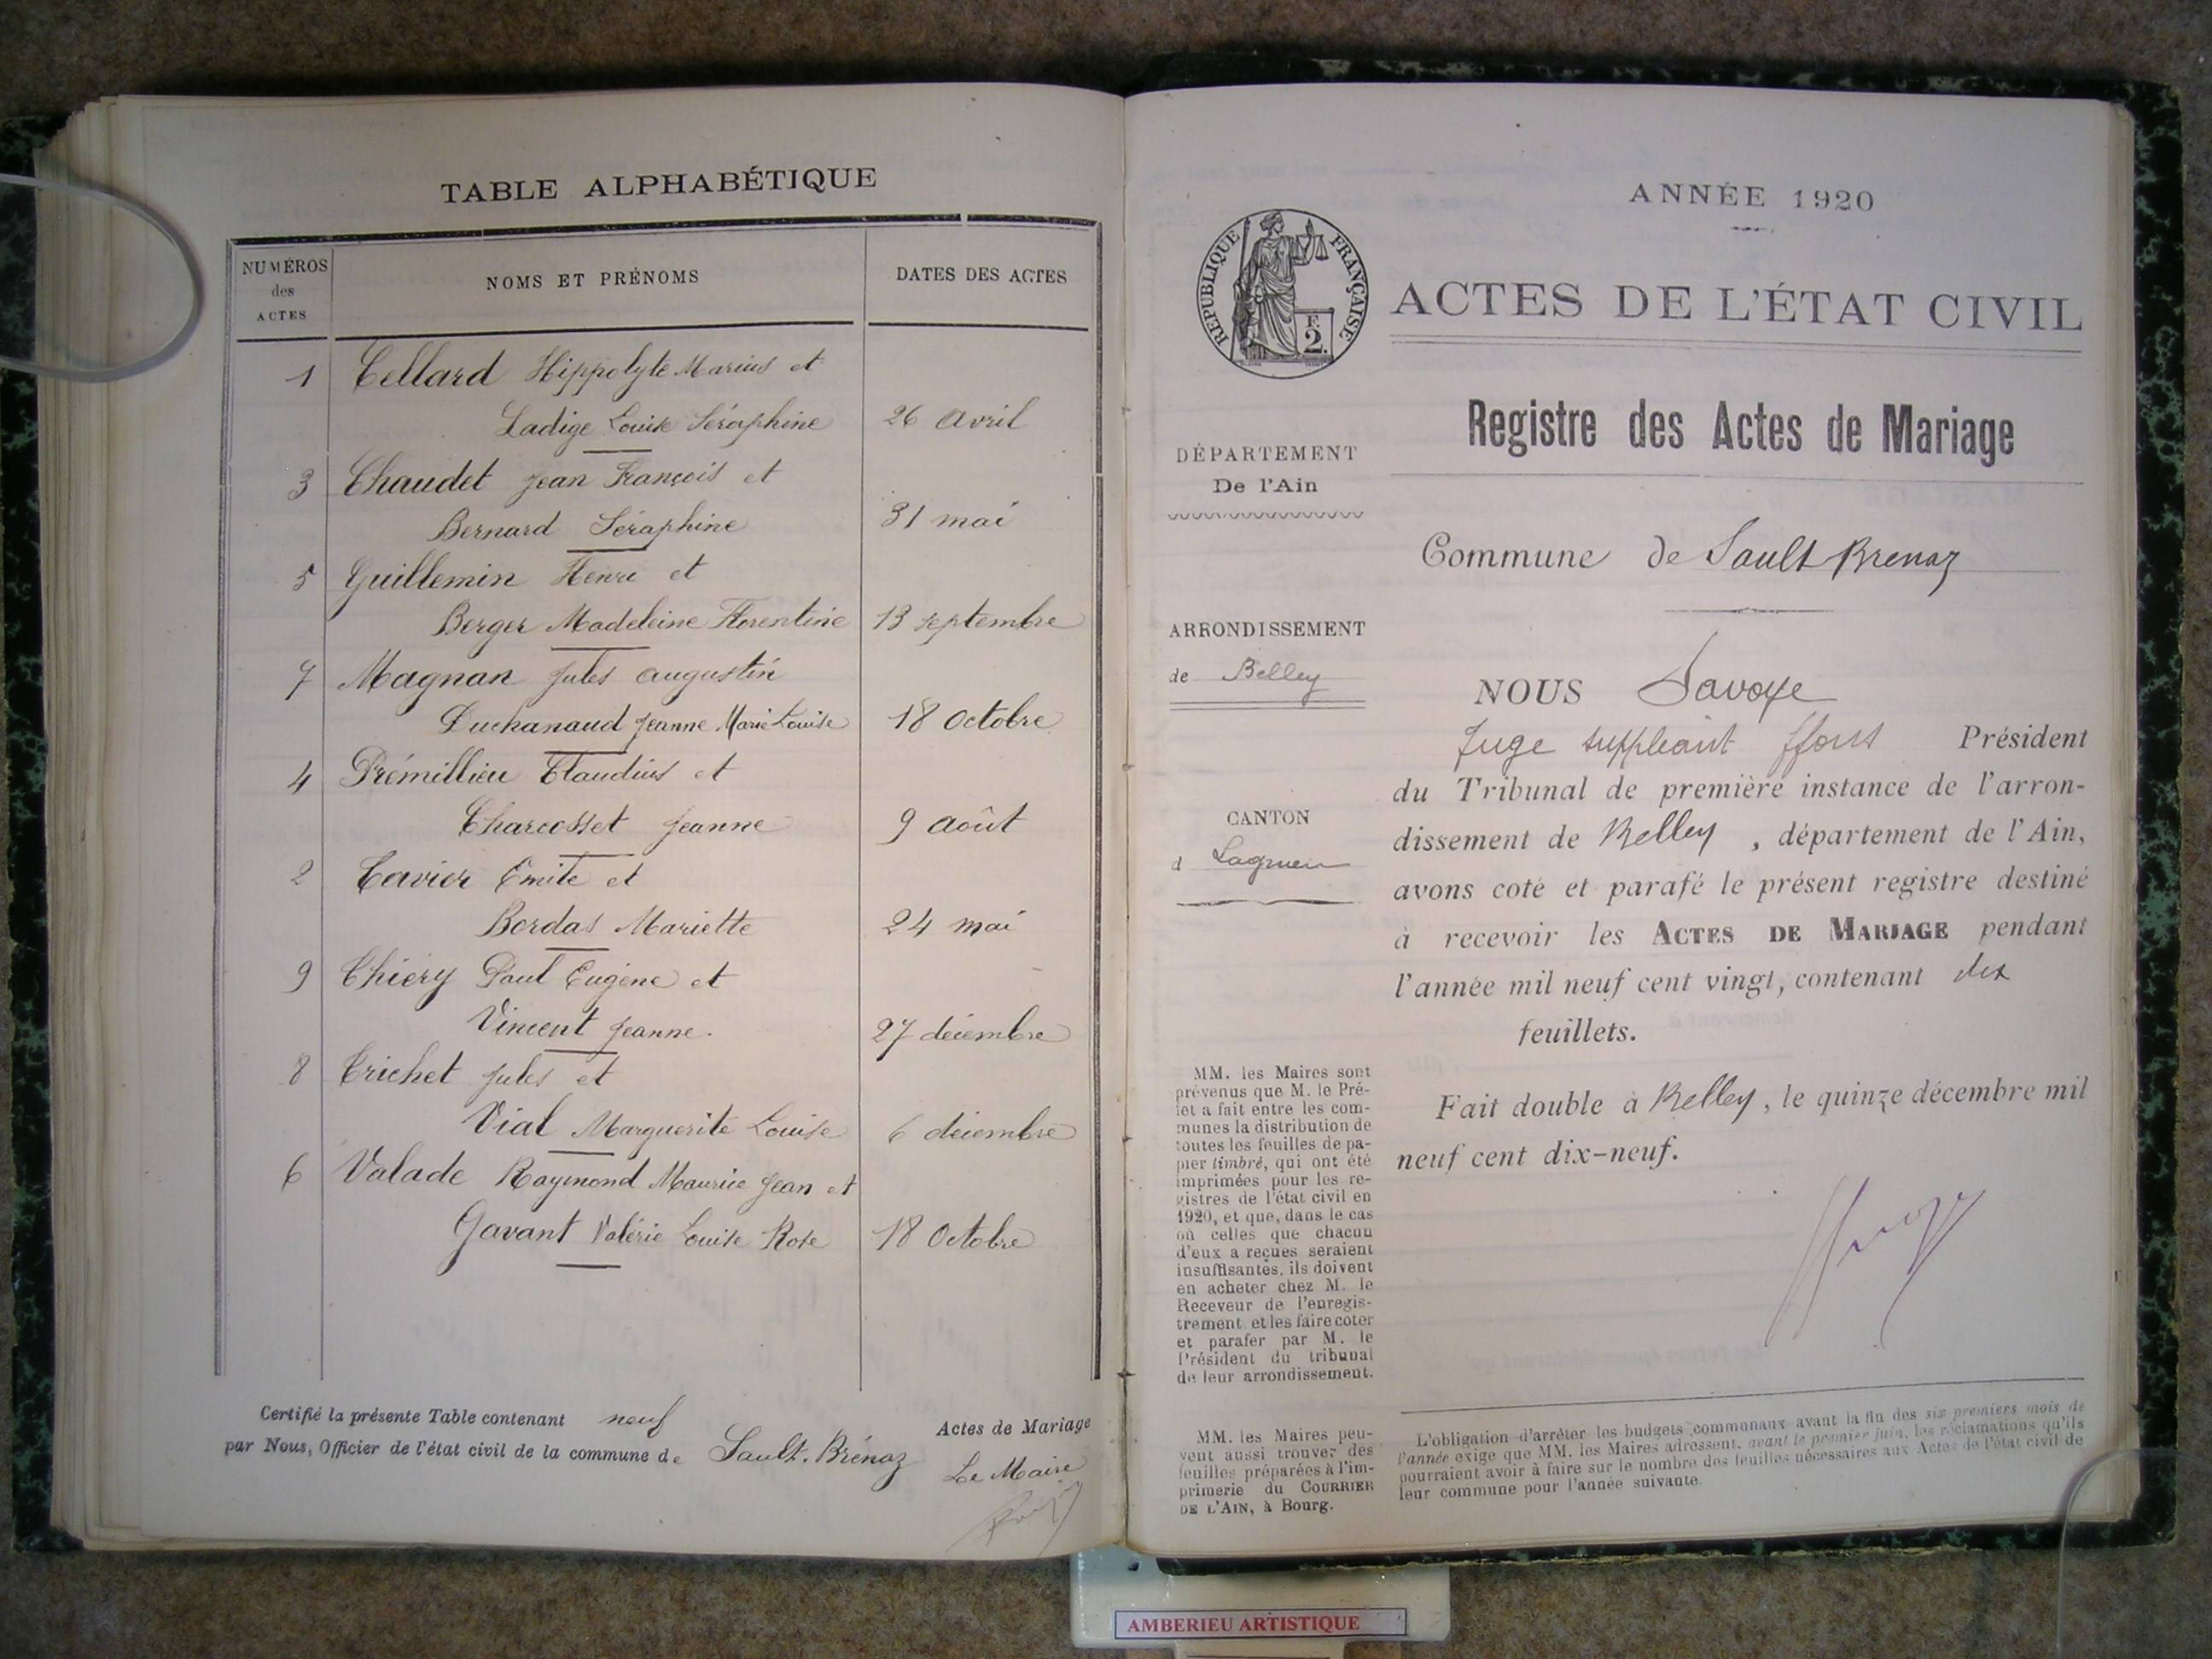 TABLE ALPHABÉTIQUE
NUMÉROS des ACTES
NOMS ET PRÉNOMS
DATES DES ACTES
1 Cellard Hippolyte Marius et
Ladige Louise Séraphine 26 avril
3 Chaudet Jean François et
Bernard Séraphine 31 mai
5 Guillemin Henri et
Berger Madeleine Florentine 13 septembre
7 Magnan Jules Augustin
Duchanaud Jeanne Marie Louise 18 Octobre
4 Prémillieu Claudius et
Charcosset Jeanne 9 août
2 Tavier Emile et
Bordas Mariette 24 mai
9 Thiéry Paul Eugène et
Vincent Jeanne. 27 décembre
8 Trichet Jules et
Vial Marguerite Louise 6 décembre
6 Valade Raymond Maurice Jean et
Gavant Valérie Louise Rose 18 Octobre
Certifié la présente Table contenant neuf Actes de Mariage
par Nous, Officier de l'état civil de la commune de Sault-Brénaz
Le Maire
ANNÉE 1920
RÉPUBLIQUE FRANÇAISE
F.
2.
ACTES DE L'ÉTAT CIVIL
Registre des Actes de Mariage
DÉPARTEMENT
De l'Ain
Commune de Sault Brenaz
ARRONDISSEMENT
de Belley
CANTON
d Lagnieu
NOUS Savoye
Juge suppléant ffons Président
du Tribunal de première instance de l'arron-
dissement de Belley, département de l'Ain,
avons coté et parafé le présent registre destiné
à recevoir les ACTES DE MARIAGE pendant
l'année mil neuf cent vingt, contenant dix
feuillets.
Fait double à Belley, le quinze décembre mil
neuf cent dix-neuf.
MM. les Maires sont
prévenus que M. le Pré-
fet a fait entre les com-
munes la distribution de
toutes les feuilles de pa-
pier timbré, qui ont été
imprimées pour les re-
gistres de l'état civil en
1920, et que, dans le cas
où celles que chacun
d'eux a reçues seraient
insuffisantes, ils doivent
en acheter chez M. le
Receveur de l'enregis-
trement et les faire coter
et parafer par M. le
Président du tribunal
de leur arrondissement.
MM. les Maires peu-
vent aussi trouver des
feuilles préparées à l'im-
primerie du COURRIER
DE L'AIN, à Bourg.
L'obligation d'arrêter les budgets communaux avant la fin des six premiers mois de
l'année exige que MM. les Maires adressent, avant le premier juin, les réclamations qu'ils
pourraient avoir à faire sur le nombre des feuilles nécessaires aux Actes de l'état civil de
leur commune pour l'année suivante.
AMBERIEU ARTISTIQUE